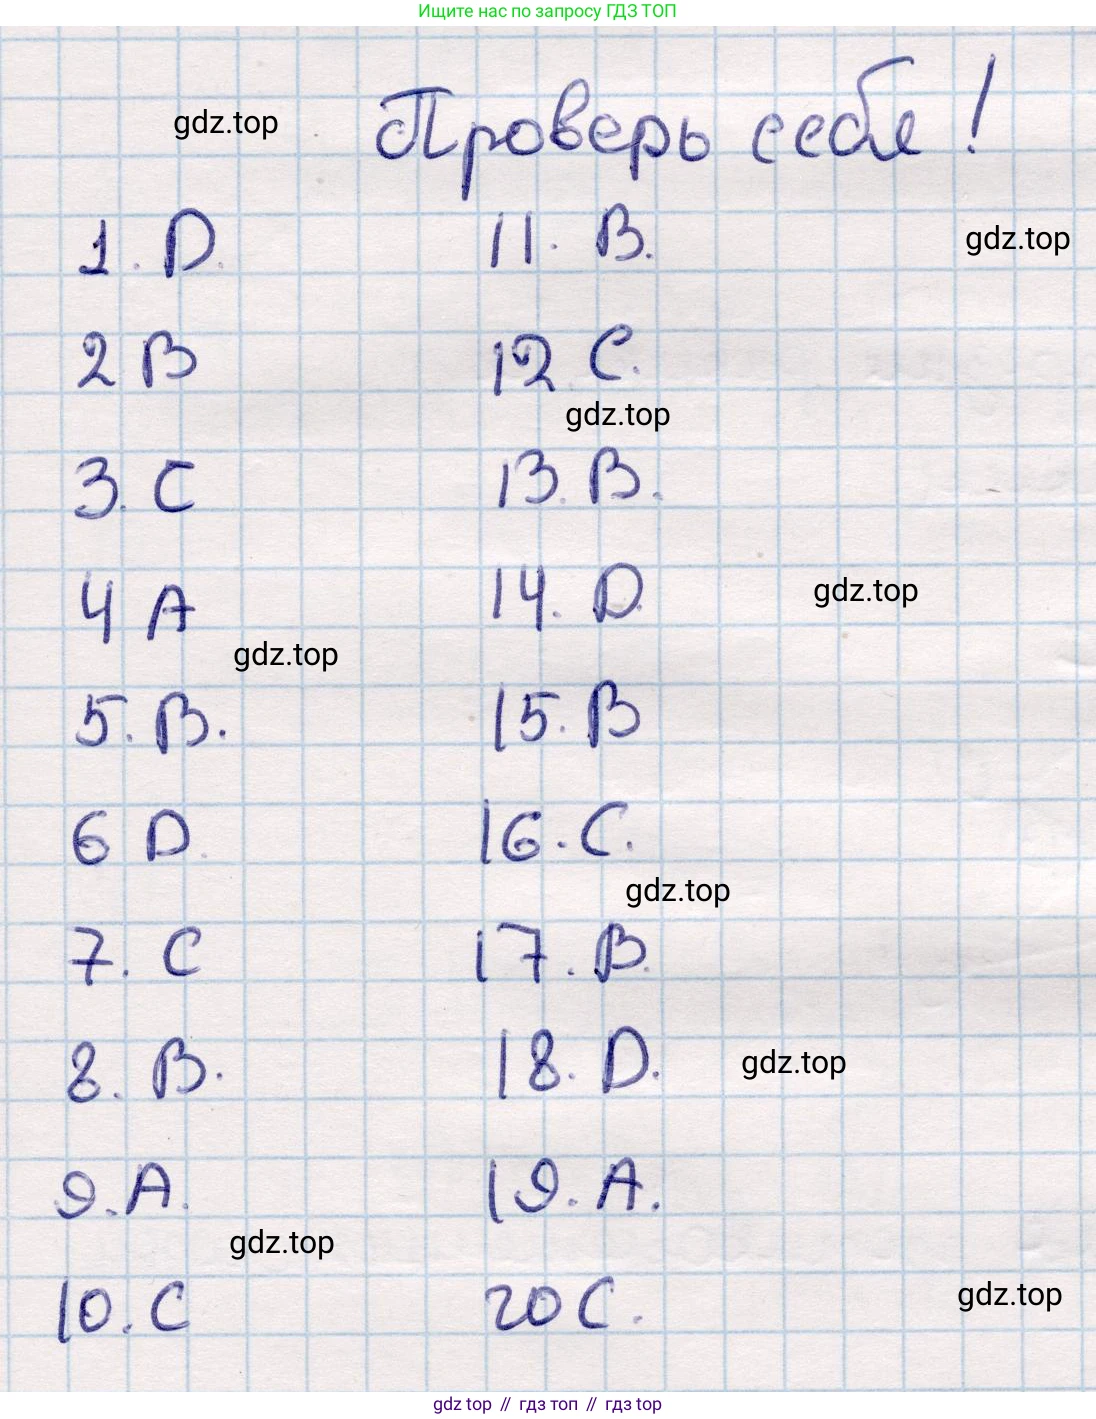 Ищите нас по запросу ГДЗ ТОП
Проверь себя!
gdz.top
1. D.
11. B.
gdz.top
2 B
12 C.
gdz.top
3. C
13. B.
4 A
14. D.
gdz.top
gdz.top
5. B.
15. B
6 D.
16. C.
gdz.top
7. C
17. B.
8. B.
18. D.
gdz.top
9. A.
19. A.
gdz.top
10. C
20 C.
gdz.top
gdz top // гдз топ // гдз top